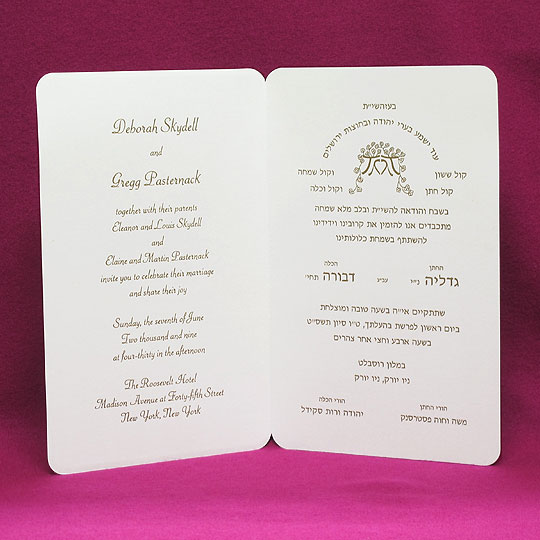 Deborah Skydell
and
Gregg Pasternack
together with their parents
Eleanor and Louis Skydell
and
Elaine and Martin Pasternack
invite you to celebrate their marriage
and share their joy
Sunday, the seventh of June
Two thousand and nine
at four-thirty in the afternoon
The Roosevelt Hotel
Madison Avenue at Forty-fifth Street
New York, New York
בעזהשי״ת
עוד ישמע בערי יהודה ובחוצות ירושלים
קול ששון וקול שמחה
קול חתן וקול וכלה
בשבח והודאה להשי״ת ובלב מלא שמחה
מתכבדים אנו להזמין את קרובינו וידידינו
להשתתף בשמחת כלולותינו
החתן הכלה
גדליה ני״ו עב״ג דבורה תחי׳
שתתקיים אי״ה בשעה טובה ומוצלחת
ביום ראשון לפרשת בהעלתך, ט״ו סיון תשס״ט
בשעה ארבע וחצי אחר צהרים
במלון רוסבלט
ניו יורק, ניו יורק
הורי החתן הורי הכלה
משה וחוה פסטרסנק יהודה ורות סקידל